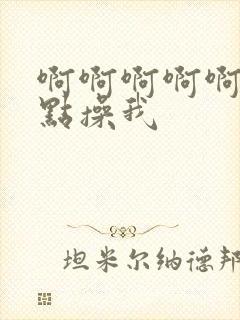 啊啊啊啊啊
點操我
坦米尔纳德邦